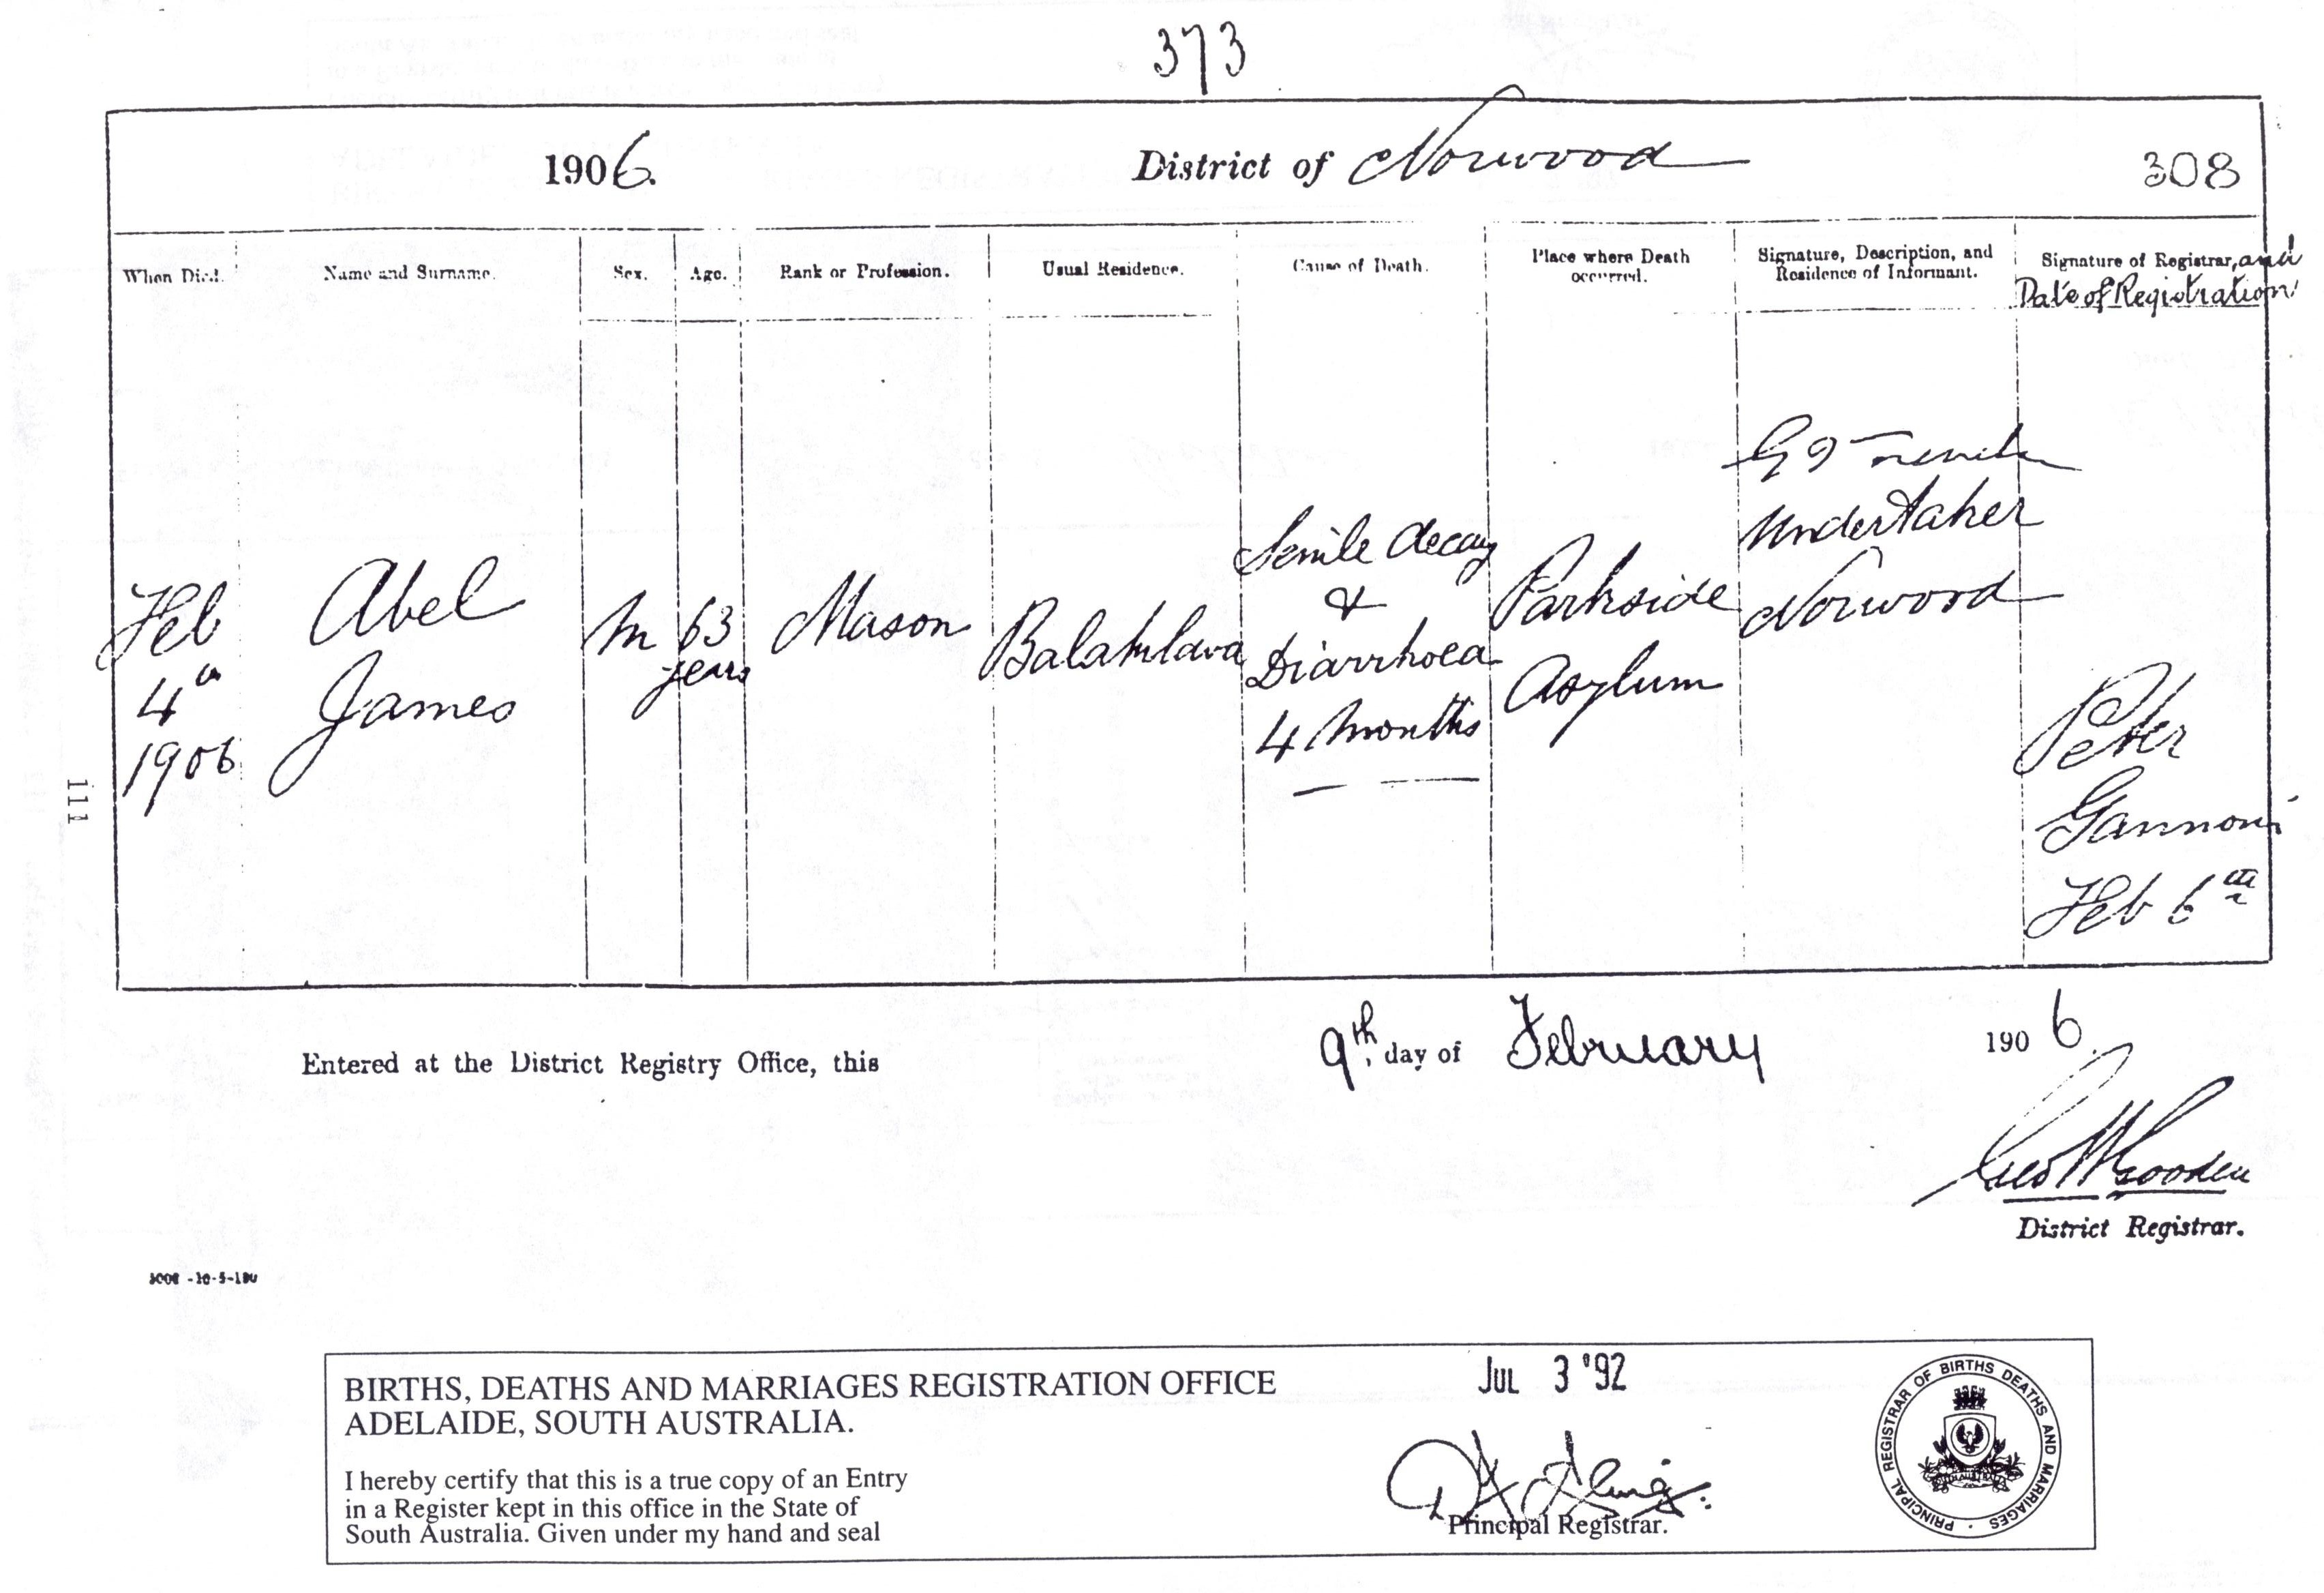 373
1906. District of Norwood 308
When Died. Name and Surname. Sex. Age. Rank or Profession. Usual Residence. Cause of Death. Place where Death occurred. Signature, Description, and Residence of Informant. Signature of Registrar, and Date of Registration
Feb
4th
1906
Abel
James
M
63
years
Mason
Balaklava
Senile decay
&
Diarrhoea
4 months
Parkside
Asylum
Undertaker
Norwood
Peter
Gannoni
Feb 6th
111
Entered at the District Registry Office, this 9th. day of February 1906.
Geo W Gooden
District Registrar.
BIRTHS, DEATHS AND MARRIAGES REGISTRATION OFFICE
ADELAIDE, SOUTH AUSTRALIA.
JUL 3 '92
I hereby certify that this is a true copy of an Entry
in a Register kept in this office in the State of
South Australia. Given under my hand and seal
Principal Registrar.
PRINCIPAL REGISTRAR OF BIRTHS DEATHS AND MARRIAGES